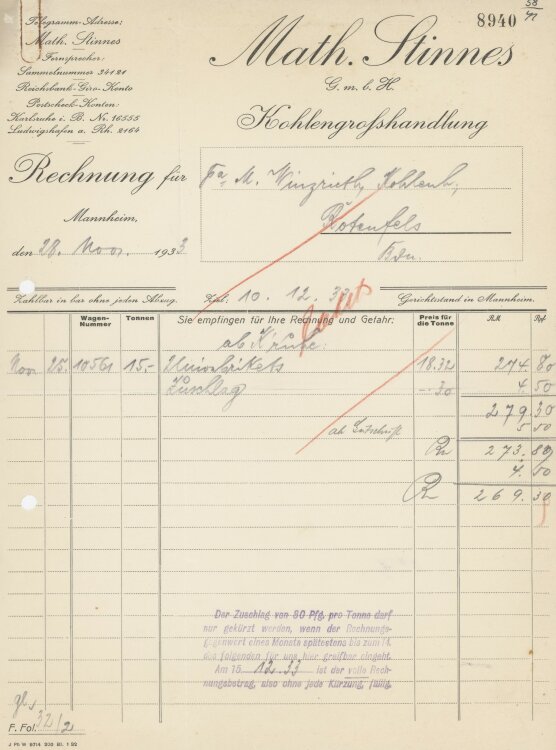 Telegramm-Adresse:
Math. Stinnes
Fernsprecher:
Sammelnummer 34121
Reichsbank-Giro-Konto
Postscheck-Konten:
Karlsruhe i. B. No. 16555
Ludwigshafen a. Rh. 2164
8940
Math. Stinnes
G. m. b. H.
Kohlengroßhandlung
Rechnung für
Fa. M. Winzrieth, Kohlenh.,
Rotenfels
Bdn.
Mannheim,
den 28. Nov. 1933
Zahlbar in bar ohne jeden Abzug.
10. 12. 33
Gerichtsstand in Mannheim.
Wagen-Nummer
Tonnen
Sie empfingen für Ihre Rechnung und Gefahr:
Preis für die Tonne
RM
Rpf.
ab Grube:
Nov. 25. 10561 15.- Unionbrikets 18.32 274.80
Zuschlag -.30 4.50
279.30
ab Gutschrift 5.50
273.80
4.50
269.30
Der Zuschlag von 30 Pfg. pro Tonne darf
nur gekürzt werden, wenn der Rechnungs-
gegenwert eines Monats spätestens bis zum 14.
des folgenden für uns hier greifbar eingeht.
Am 15. 12. 33 ist der volle Rech-
nungsbetrag, also ohne jede Kürzung, fällig.
F. Fol. 32/2